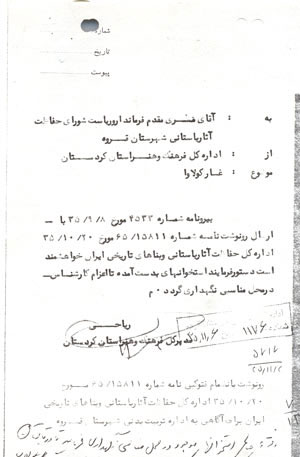 شماره
تاریخ
پیوست
به : آقای فخری مقدم فرماندار وریاست شورای حفاظت
آثارباستانی شهرستان قروه
از : اداره کل فرهنگ وهنراستان کردستان
موضوع : غارکولاوا
پیرونامه شماره ۴۵۳۳ مورخ ۳۵/۹/۸ با
ارسال رونوشت نامه شماره ۶۵/۱۵۸۱۱ مورخ ۳۵/۱۰/۲۰
اداره کل حفاظت آثارباستانی وبناهای تاریخی ایران خواهشمند
است دستورفرمایند استخوانهای بدست آمده تااعزام کارشناس
درمحل مناسبی نگهداری گردد ۰ م
ریاحی
مدیرکل فرهنگ وهنراستان کردستان
۱۱۷۶
۳۵/۱۱/۶
۵۷۱۷
۲۵/۱۱/۲
رونوشت باانضمام فتوکپی نامه شماره ۶۵/۱۵۸۱۱ مورخ
۳۵/۱۰/۲۰ اداره کل حفاظت آثارباستانی وبناهای تاریخی
ایران برای آگاهی به اداره تربیت بدنی شهرستان قروه